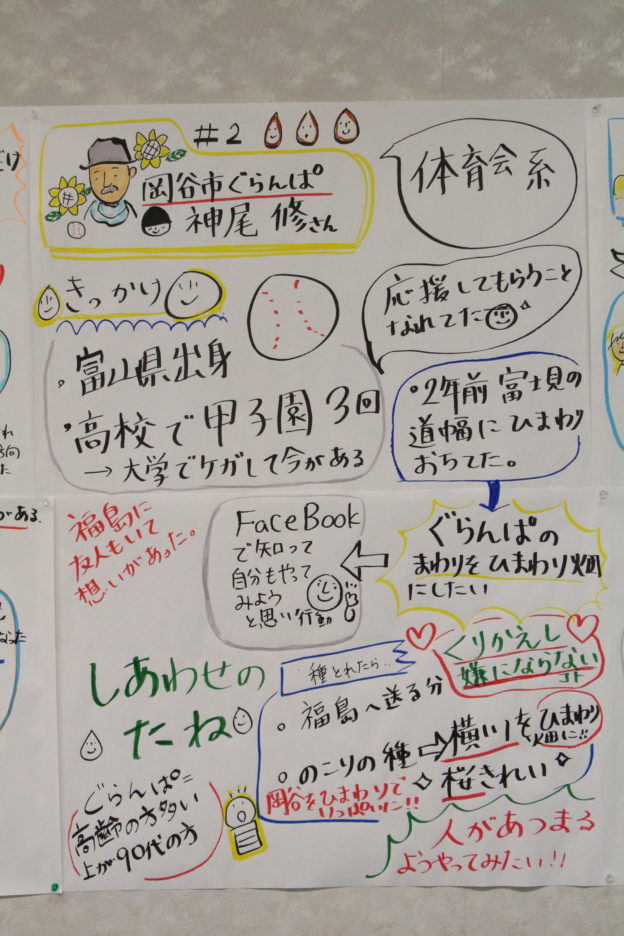 #2
岡谷市ぐらんぱ
神尾 修さん
体育会系
きっかけ
応援してもらうこと
なれてた
・富山県出身
・高校で甲子園3回
→大学でケガして今がある
・2年前富士見の
道幅にひまわり
おちてた。
ぐらんぱの
まわりをひまわり畑
にしたい
FaceBook
で知って
自分もやって
みよう
と思い行動
福島に
友人もいて
想いがあった。
くりかえし
嫌にならない
しあわせの
たね
種とれたら..
・福島へ送る分
・のこりの種⇨横川をひまわり
畑に!!
桜きれい
岡谷をひまわりで
いっぱいに!!
ぐらんぱ=
高齢の方多い
上が90代の方
人があつまる
ようやってみたい!!
だけ
がある.